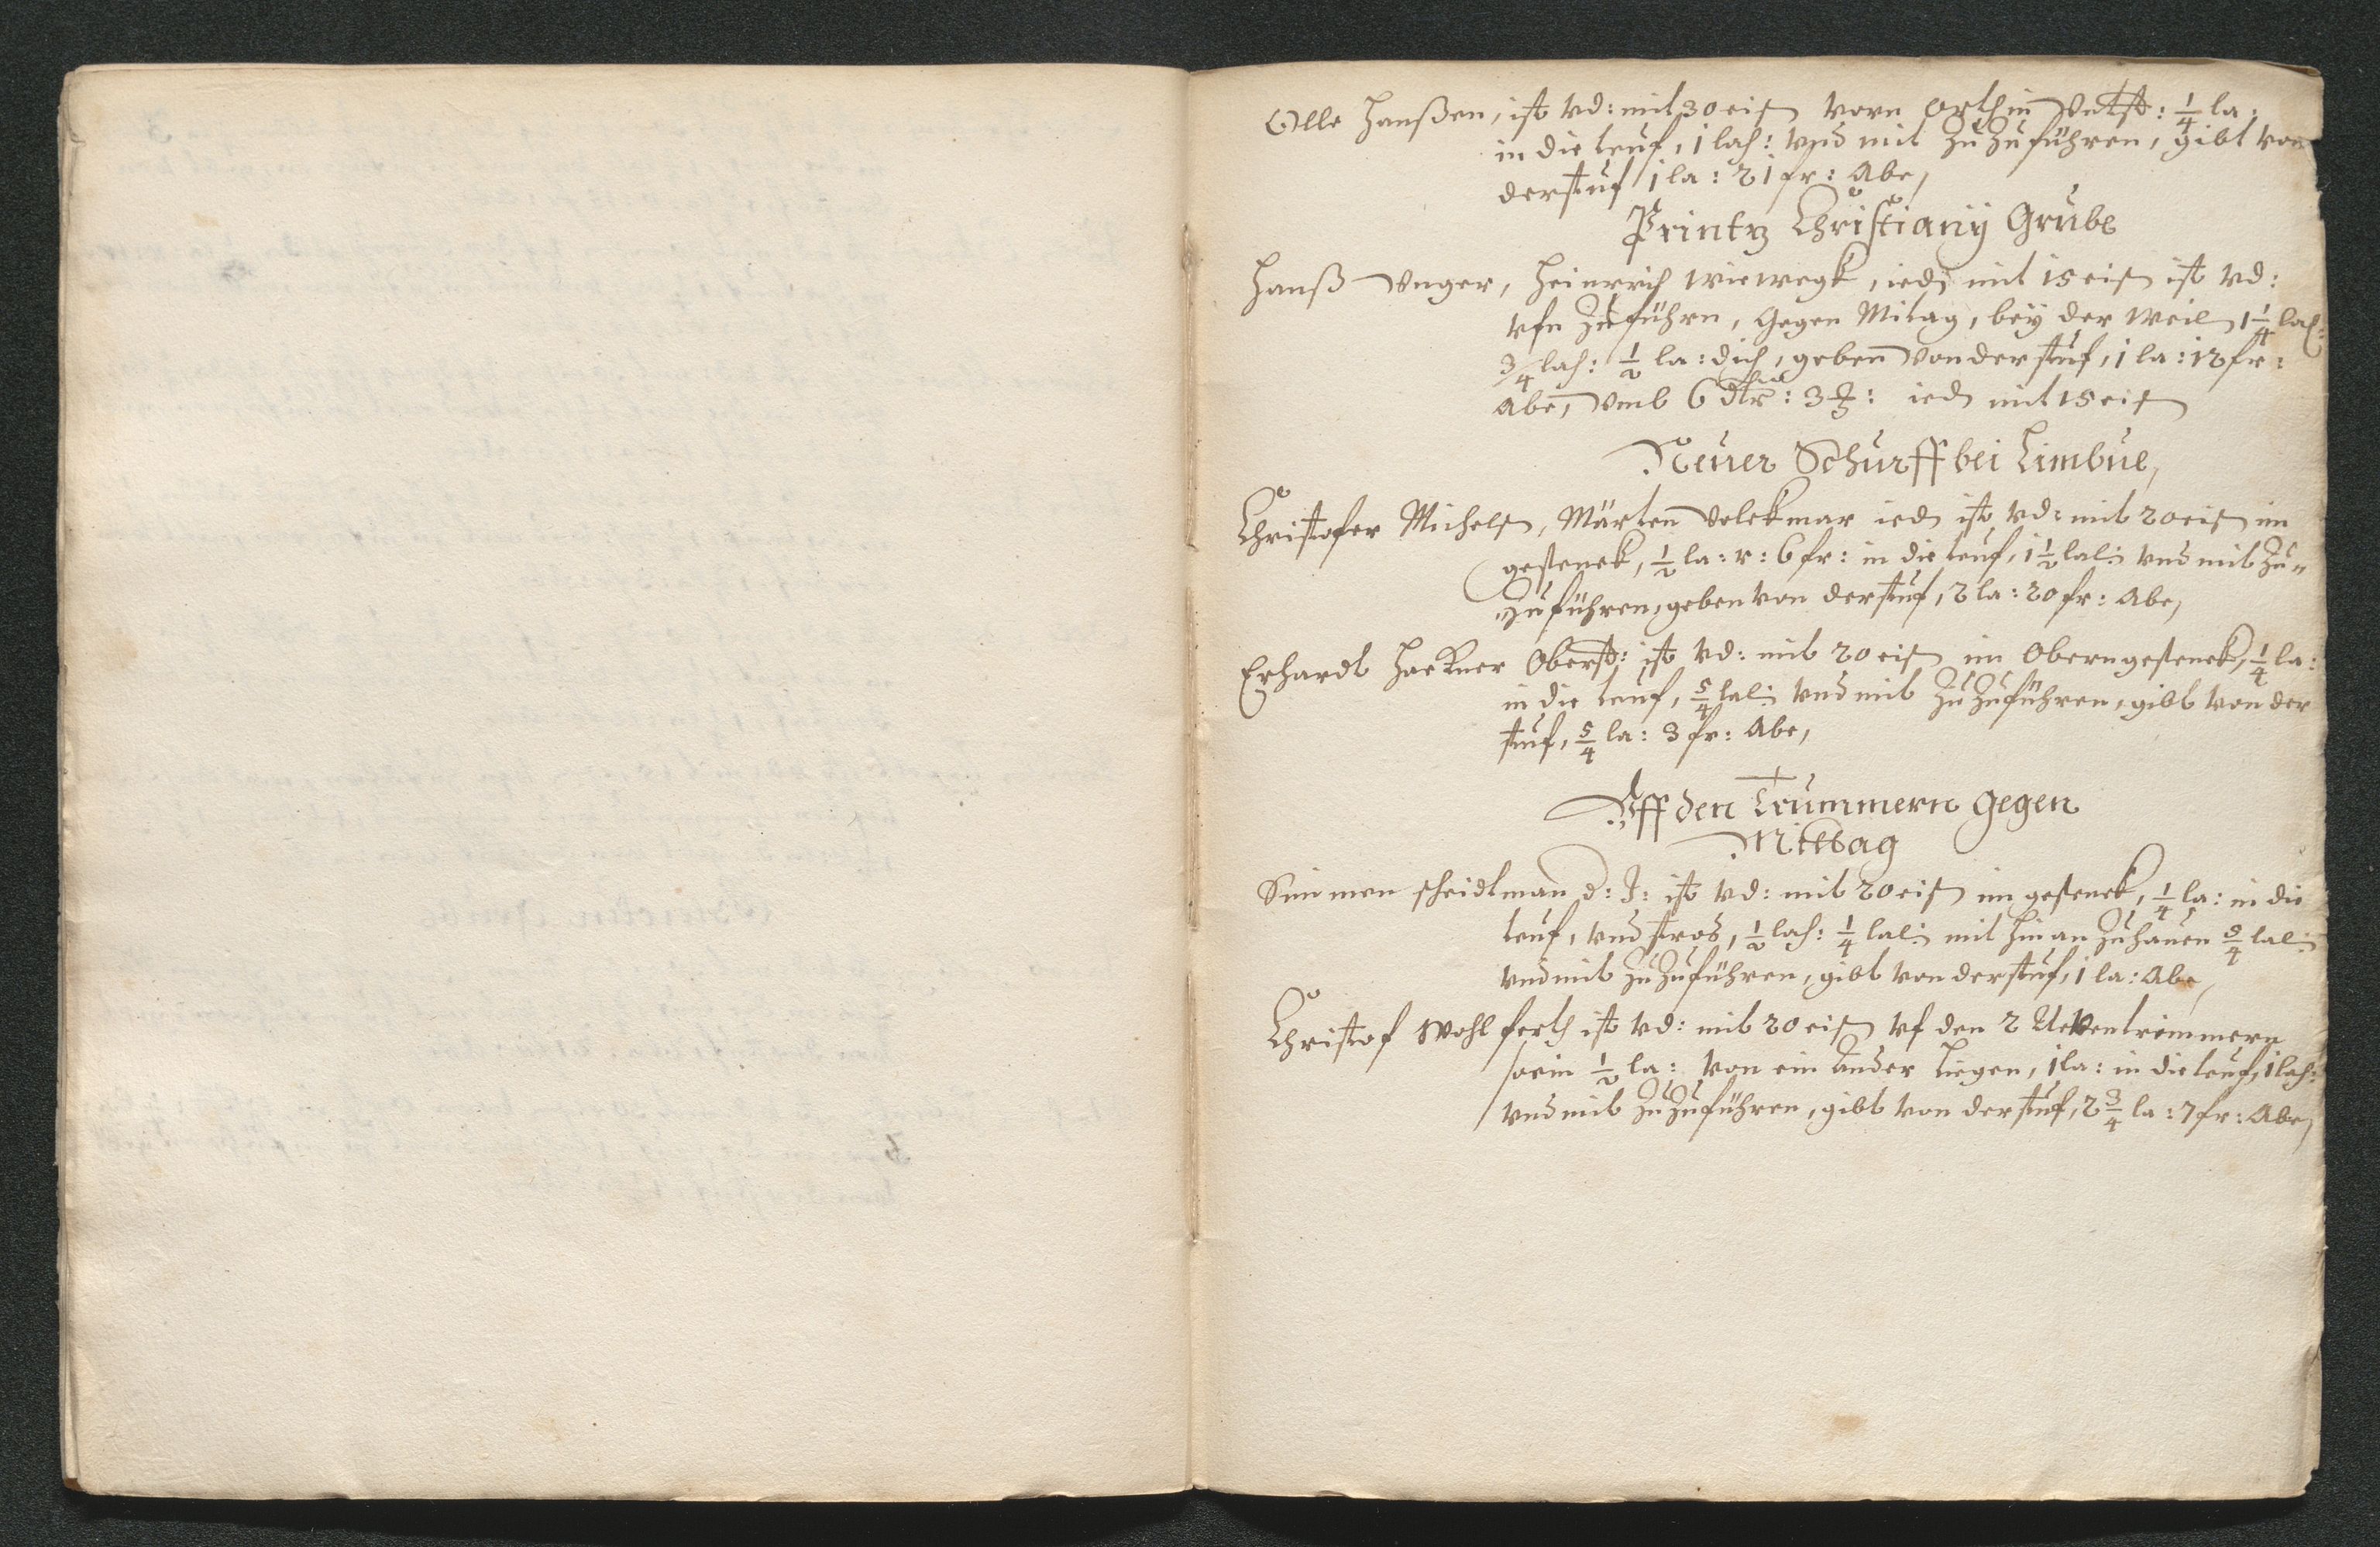 Olle Hanßen, ist vd: mit 30 eiß vorn Orth in Vnttst: 1/4 la:
in die teuf, 1 lach: vnd mit zu Zuführen, gibt von
der stuf 1 la: 21 fr: Abe,
Printz Christiany Grube
Hanß Vnger, Heinrich wiewegk, ied mit 15 eiß ist vd:
vfn Zuführn, Gegen Mitag, bey der Weil 1 1/4 lach:
3/4 lach: 1/2 la: dich, geben von der stuf, 1 la: 12 fr:
Abe, Vmb 6 dlr: 3 ied mit 15 eiß
Neuer Schurff bei Limbue,
Christofer Michels, Märten Volckmar ied ist vd: mit 20 eiß im
gesenck, 1/2 la: r: 6 fr: in die teuf, 1 1/2 lal: vnd mit Zu„
„Zuführen, geben von der stuf, 2 la: 20 fr: Abe,
Erhardt Hackner Oberst: ist vd: mit 20 eiß im Obern gesenck, 1/4 la:
in die teuf, 5/4 lal: vnd mit Zu Zuführen, gibt von der
stuf, 5/4 la: 3 fr: Abe,
Vff den Trummern gegen
Mittag
Simmon scheidtman d: J: ist vd: mit 20 eiß im gesenck, 1/4 la: in die
teuf, vnd stros, 1/2 lach: 1/4 lal: mit hin an Zuhauen 5/4 lal:
vnd mit Zu Zuführen, gibt von der stuf, 1 la: Abe,
Christof Wohlferth ist vd: mit 20 eiß vf den 2 trimmern
so ein 1/2 la: von ein Ander Liegen, 1 la: in die teuf, 1 lach:
vnd mit Zu Zuführen, gibt von der stuf, 2 3/4 la: 7 fr: Abe,